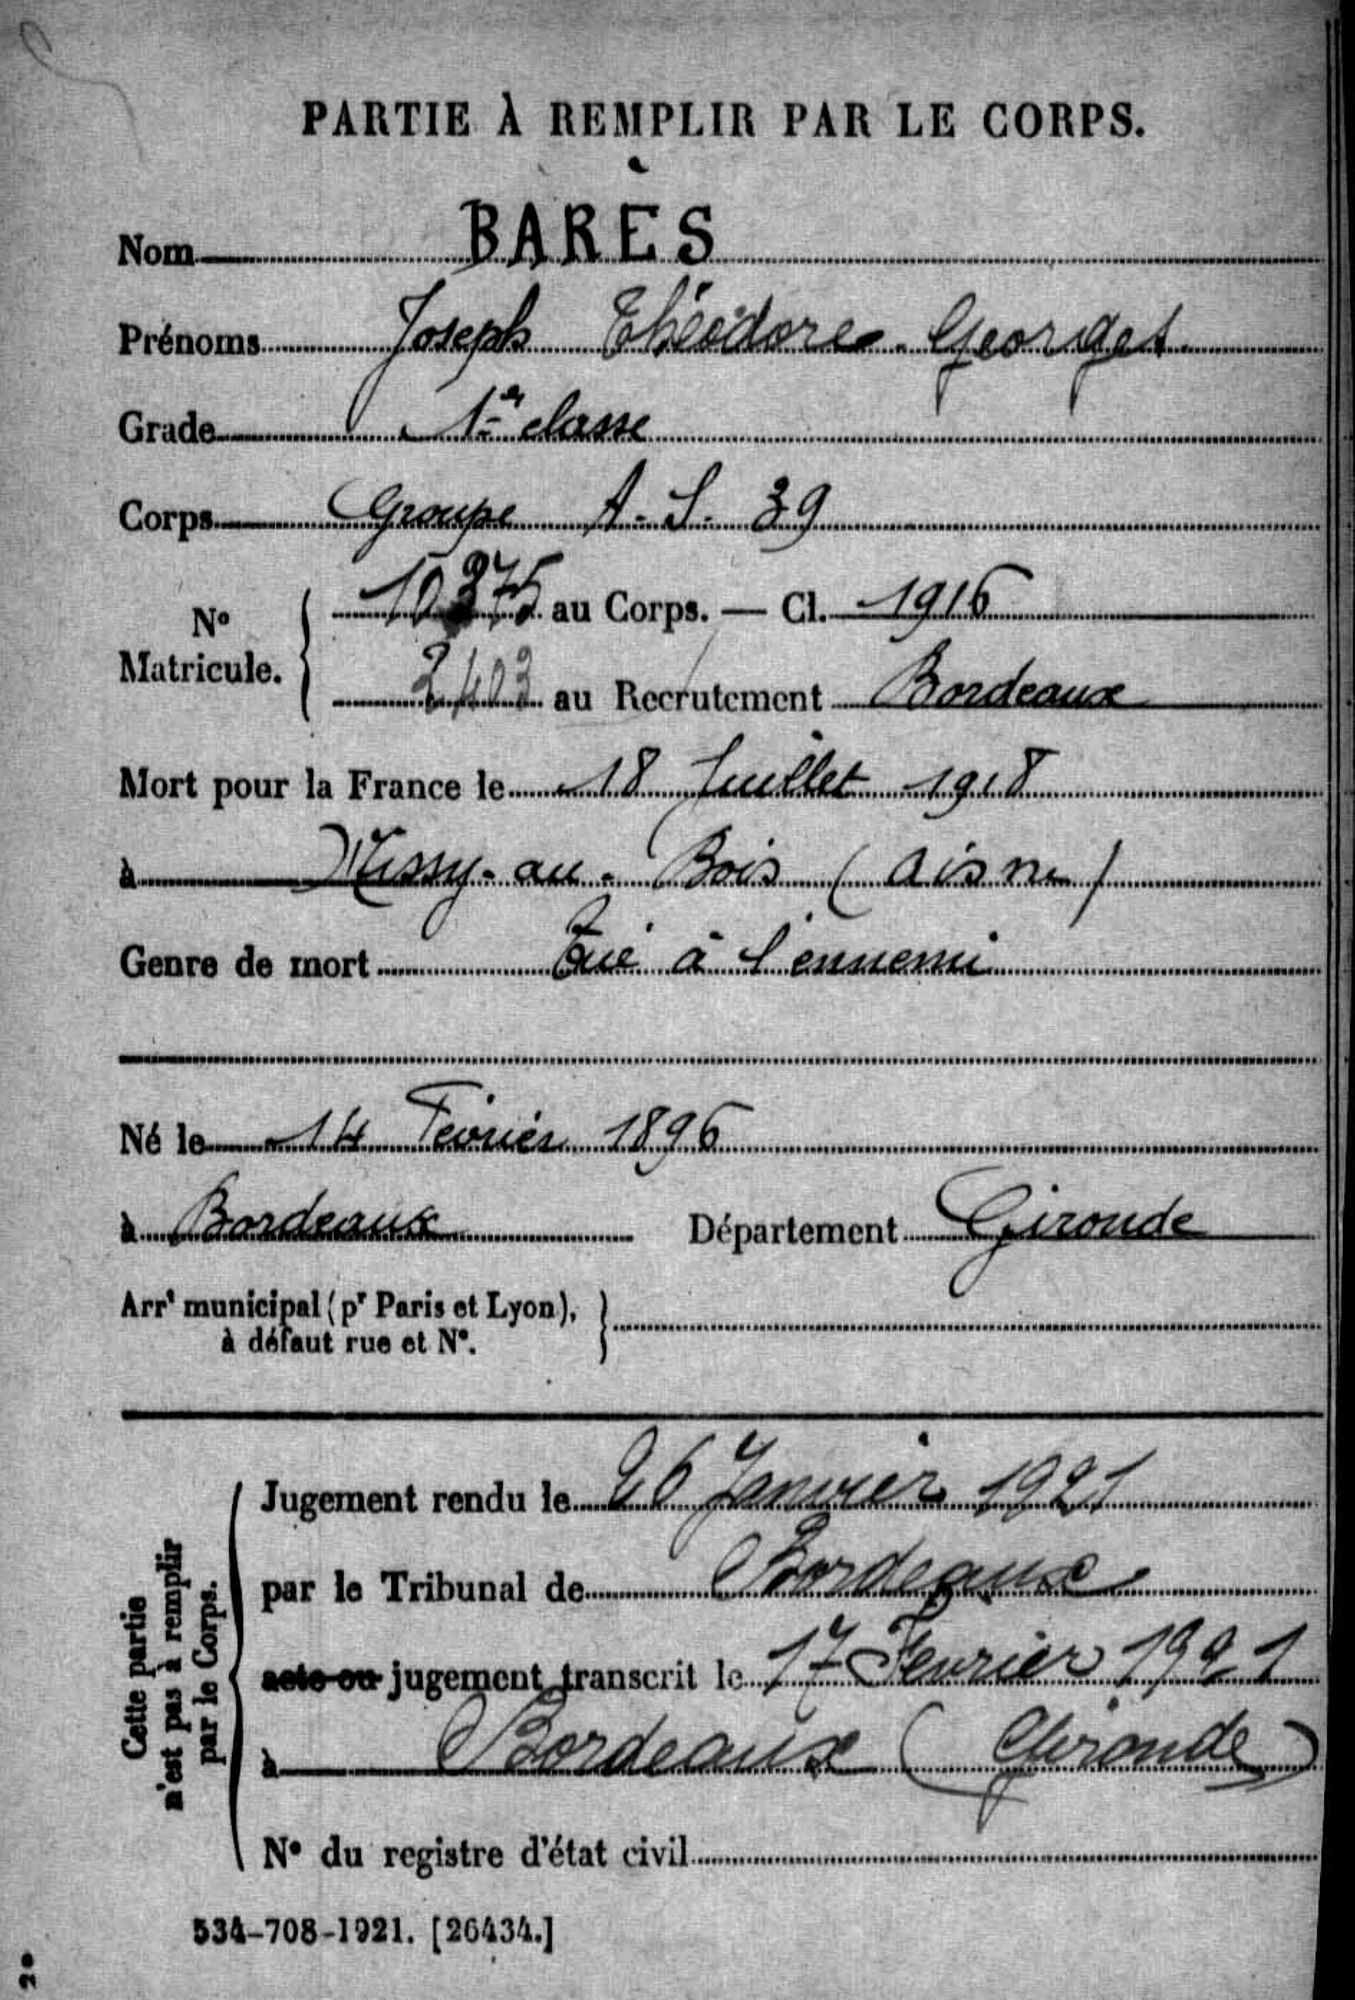 PARTIE À REMPLIR PAR LE CORPS.
Nom BARÈS
Prénoms Joseph Théodore Georges
Grade 1re classe
Corps Groupe A. S. 39
No Matricule. 10375 au Corps. — Cl. 1916
2403 au Recrutement Bordeaux
Mort pour la France le 18 Juillet 1918
à Missy-au-Bois (Aisne)
Genre de mort Tué à l'ennemi
Né le 14 Février 1896
à Bordeaux Département Gironde
Arrt municipal (pr Paris et Lyon),
à défaut rue et No.
Cette partie
n'est pas à remplir
par le Corps.
Jugement rendu le 26 Janvier 1921
par le Tribunal de Bordeaux
acte ou jugement transcrit le 17 Fevrier 1921
à Bordeaux (Gironde)
No du registre d'état civil
534-708-1921. [26434.]